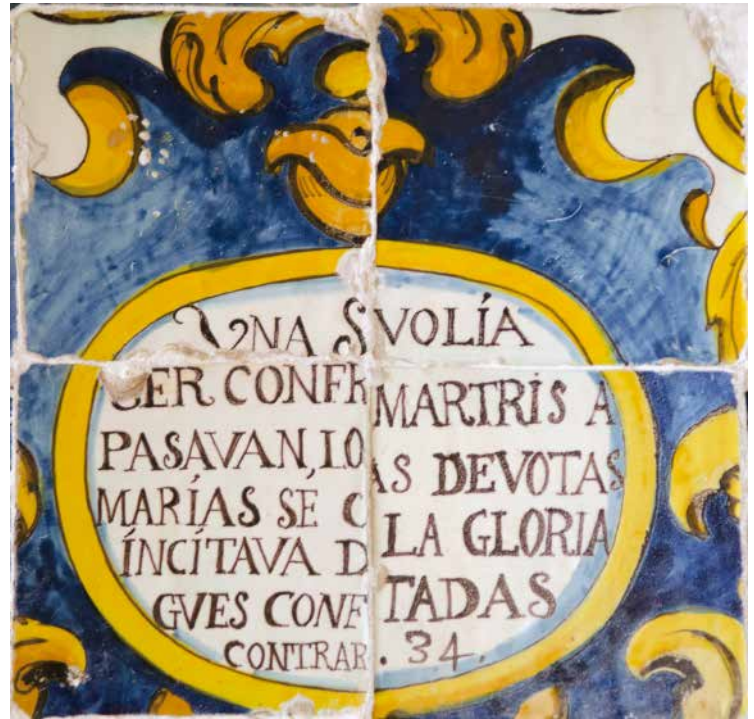 VNA SVOLÍA
CER CONFR MARTRIS A
PASAVAN, LO AS DEVOTAS
MARÍAS SE C LA GLORIA
ÍNCÍTAVA D TADAS
GVES CONF . 34.
CONTRAR